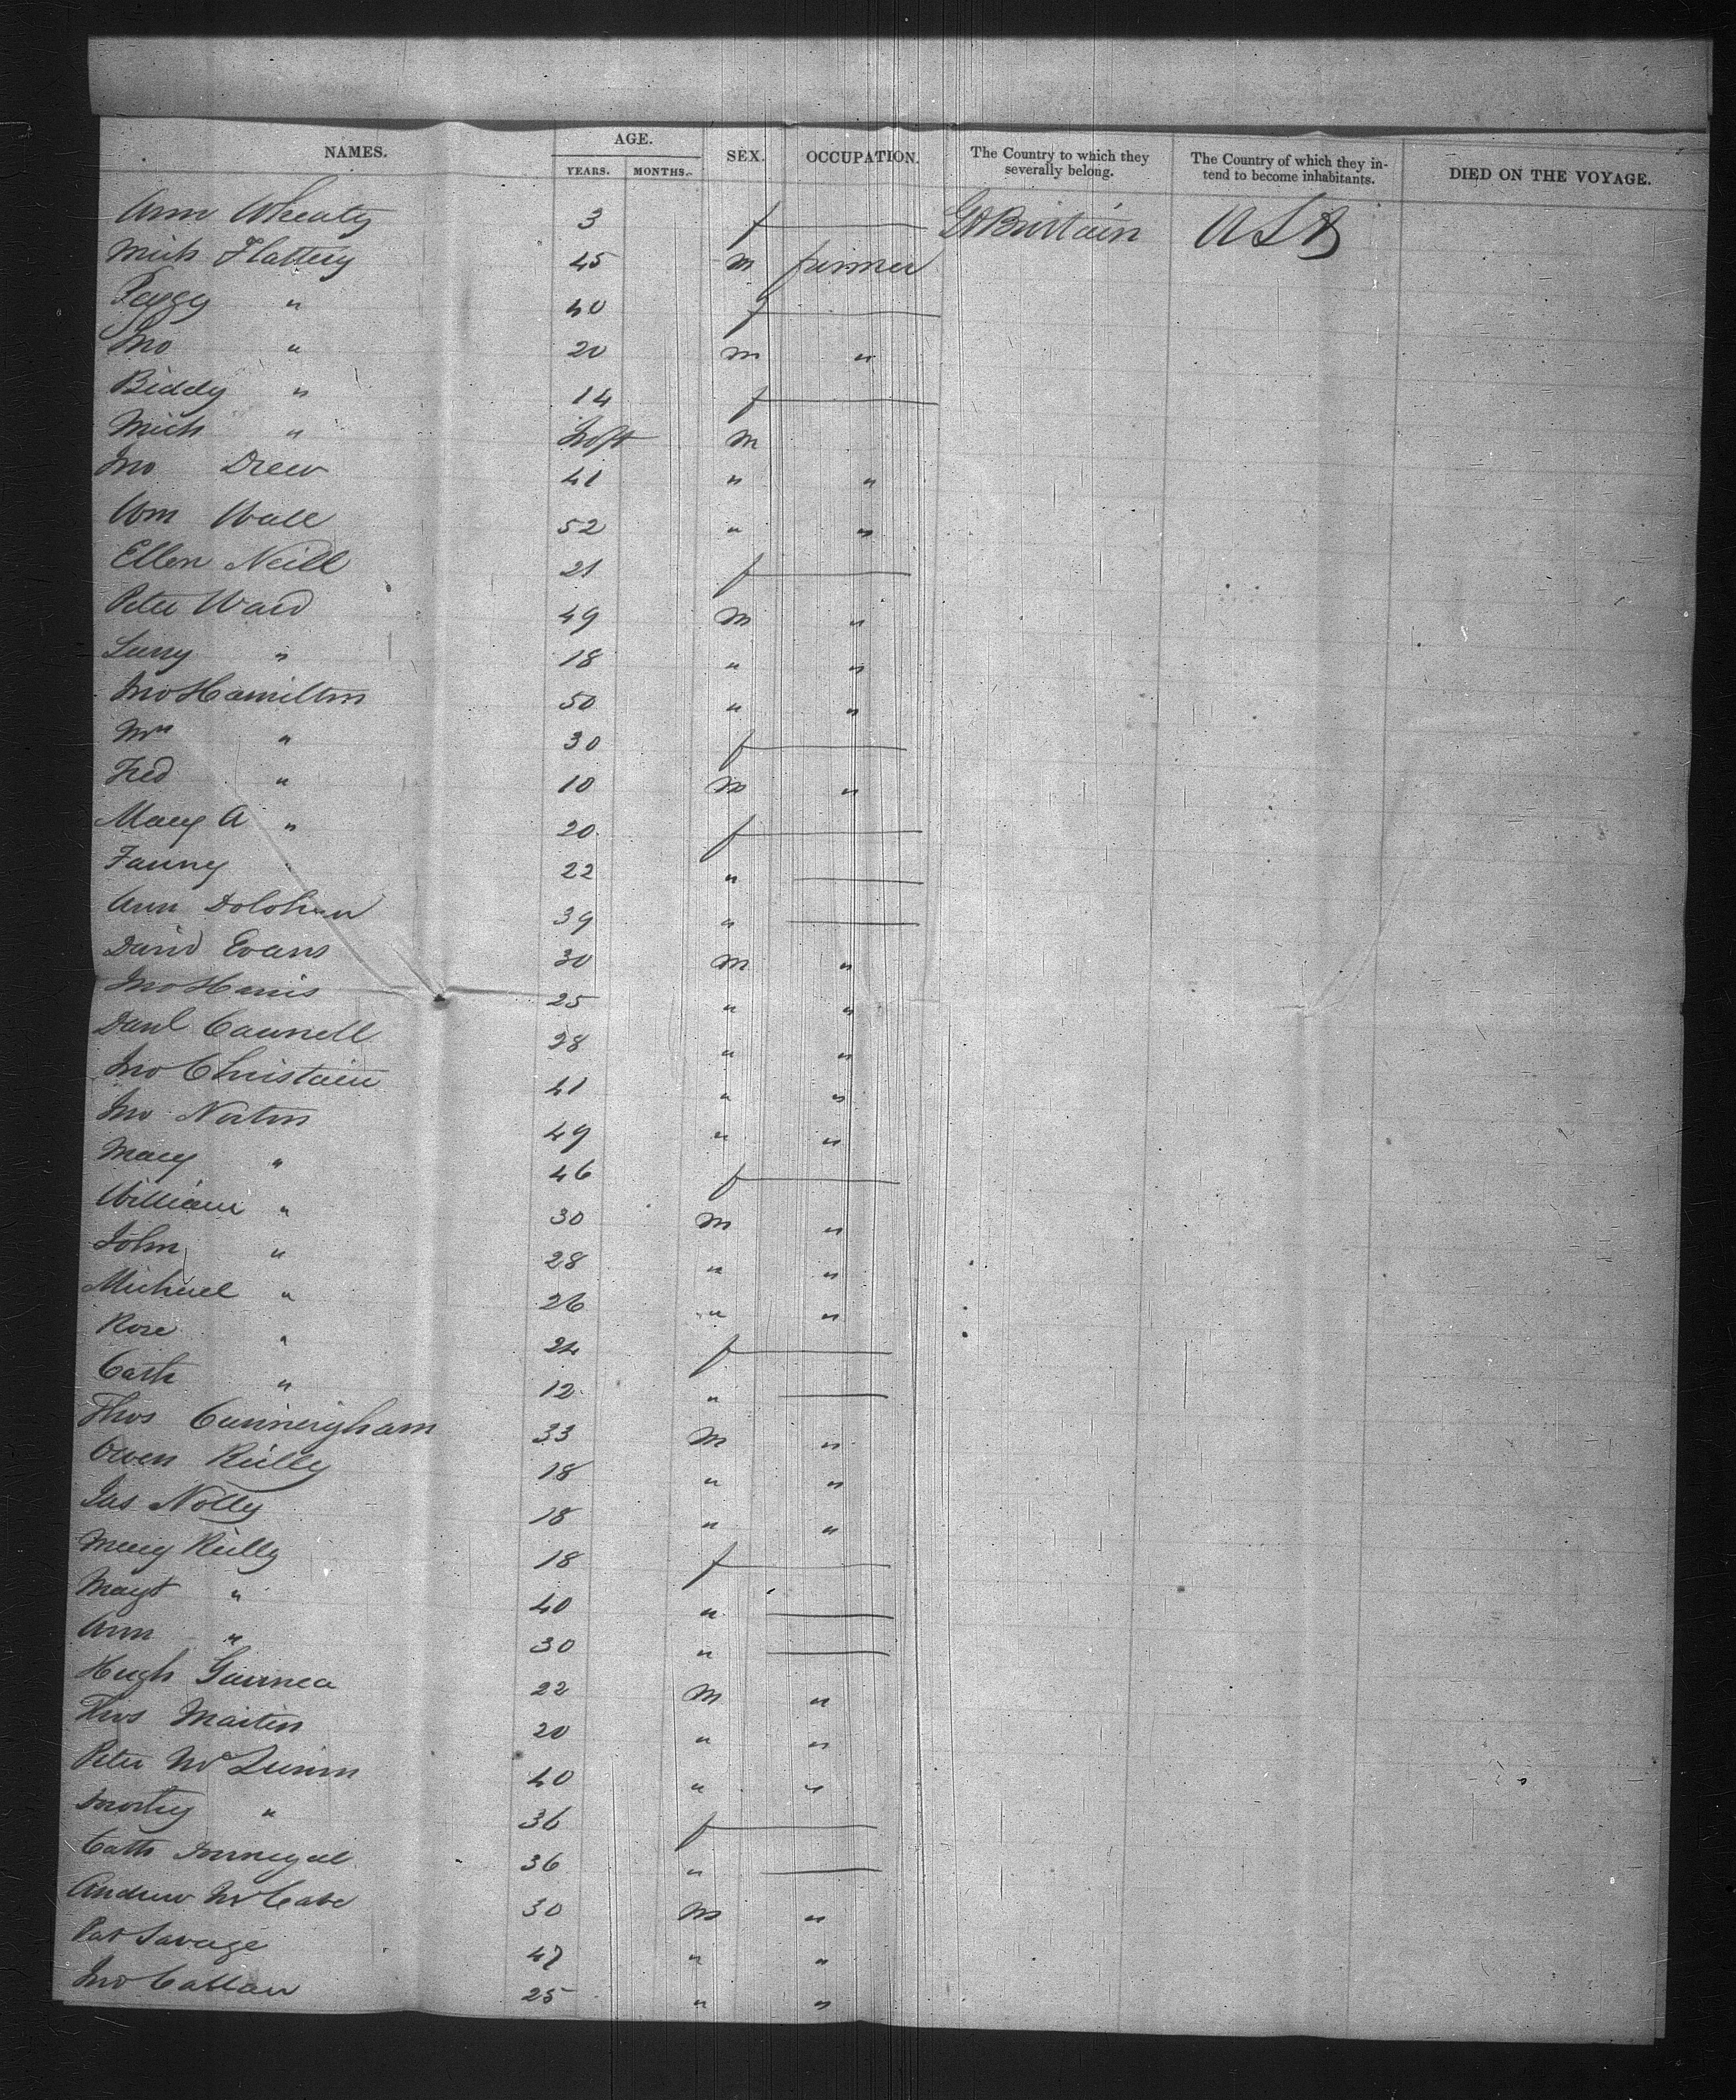 NAMES. AGE. SEX. OCCUPATION. The Country to which they severally belong. The Country of which they intend to become inhabitants. DIED ON THE VOYAGE.
YEARS. MONTHS.
Ann Wheaty 3 f — Gt Brittain U S A
Mich Flattery 45 m farmer
Peggy " 40 f —
Jno " 20 m "
Biddy " 14 f —
Mich " Inft m
Jno Drew 41 " "
Wm Wall 52 " "
Ellen Neill 21 f —
Peter Ward 49 m "
Larry " 18 " "
Jno Hamilton 50 " "
Mrs " 30 f —
Fred " 10 m "
Mary A " 20 f —
Fanny " 22 " —
Ann 39 " —
David Evans 30 m "
Jno Harris 25 " "
Danl Cannell 28 " "
Jno Christain 41 " "
Jno Norton 49 " "
Mary " 46 f —
William " 30 m "
John " 28 " "
Michael " 26 " "
Rose " 24 f —
Cath " 12 " —
Thos Cunningham 33 m "
Owen Reilly 18 " "
Jas Nolly 18 " "
Mary Reilly 18 f —
Magt " 40 " —
Ann " 30 " —
Hugh 22 m "
Thos Martin 20 " "
Peter Mc 40 " "
" 36 f —
Cath 36 " —
Andrew McCabe 30 m "
Pat Savage 47 " "
Jno Callan 25 " "